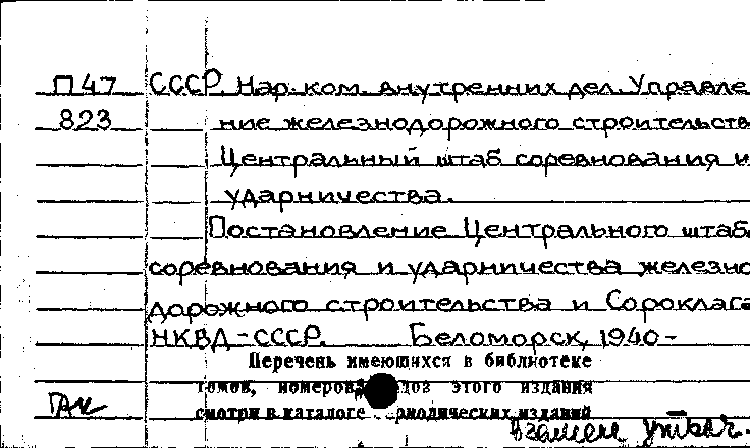 П47 СССР. Нар. ком. внутренних дел. Управле
823 ние железнодорожного строительств
Центральный штаб соревнования и
ударничества.
Постановление Центрального штаба
соревнования и ударничества железно
дорожного строительства и Сороклага
НКВД-СССР. Беломорск, 1940-
Перечень имеющихся в библиотеке
томов, номеров, годов этого издания
смотри в каталоге периодических изданий
взамен утрач.